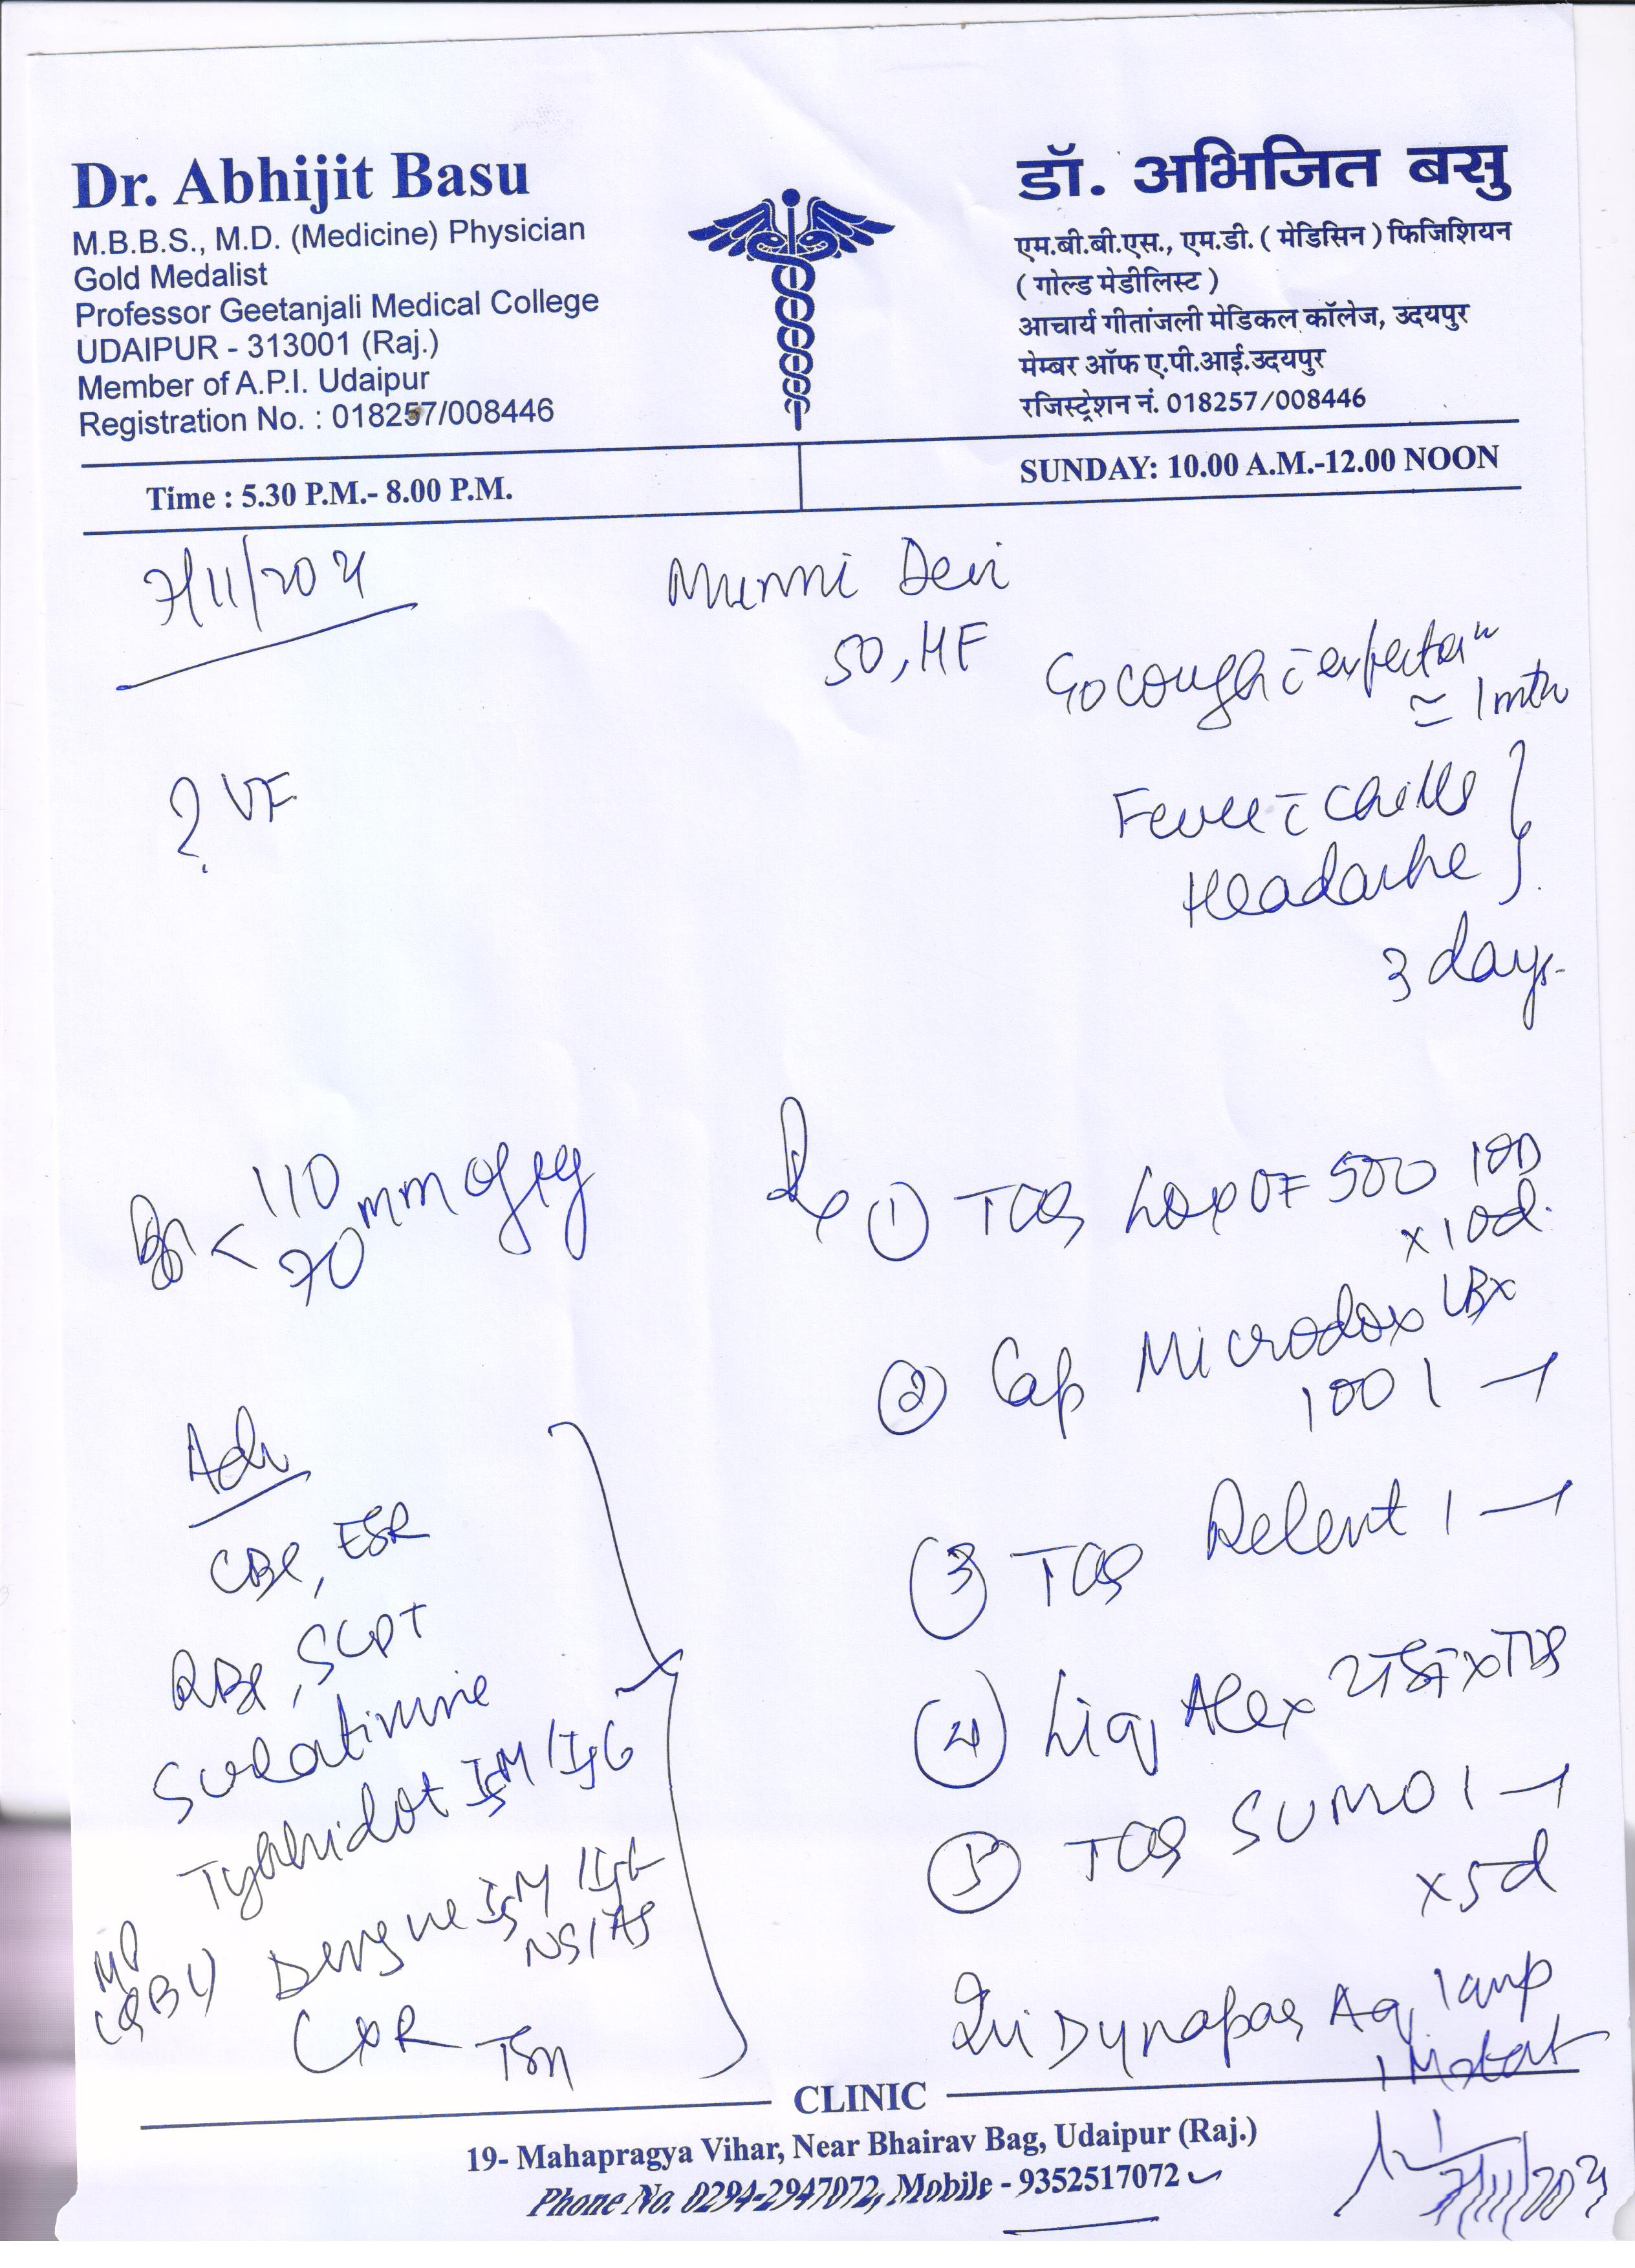 Dr. Abhijit Basu
M.B.B.S., M.D. (Medicine) Physician
Gold Medalist
Professor Geetanjali Medical College
UDAIPUR - 313001 (Raj.)
Member of A.P.I. Udaipur
Registration No. : 018257/008446
डॉ. अभिजित बसु
एम.बी.बी.एस., एम.डी. ( मेडिसिन ) फिजिशियन
( गोल्ड मेडीलिस्ट )
आचार्य गीतांजली मेडिकल कॉलेज, उदयपुर
मेम्बर ऑफ ए.पी.आई.उदयपुर
रजिस्ट्रेशन नं. 018257/008446
Time : 5.30 P.M.- 8.00 P.M.
SUNDAY: 10.00 A.M.-12.00 NOON
7/11/2024
Munni Devi
50, HF
cough c̄ expectn
≃ 1 mth
? VF
Fever c̄ chills
Headache
3 days.
110
70 mm of Hg
Rx ① Tab LoxOF 500 1OD
x 10d.
② Cap Microdox LBx
100 1 — 1
③ Tab Relent 1 — 1
④ Liq Alex x TDS
⑤ Tab SUMO 1 — 1
x 5d
Inj Dynapar Aq 1 amp
IM stat
Adv
CBC, ESR
RBS, SGPT
S creatinine
Typhidot IgM/IgG
Dengue IgM/IgG
NS1 Ag
MP
(QBC)
CXR
7/11/2024
CLINIC
19- Mahapragya Vihar, Near Bhairav Bag, Udaipur (Raj.)
Phone No. 0294-2947072, Mobile - 9352517072